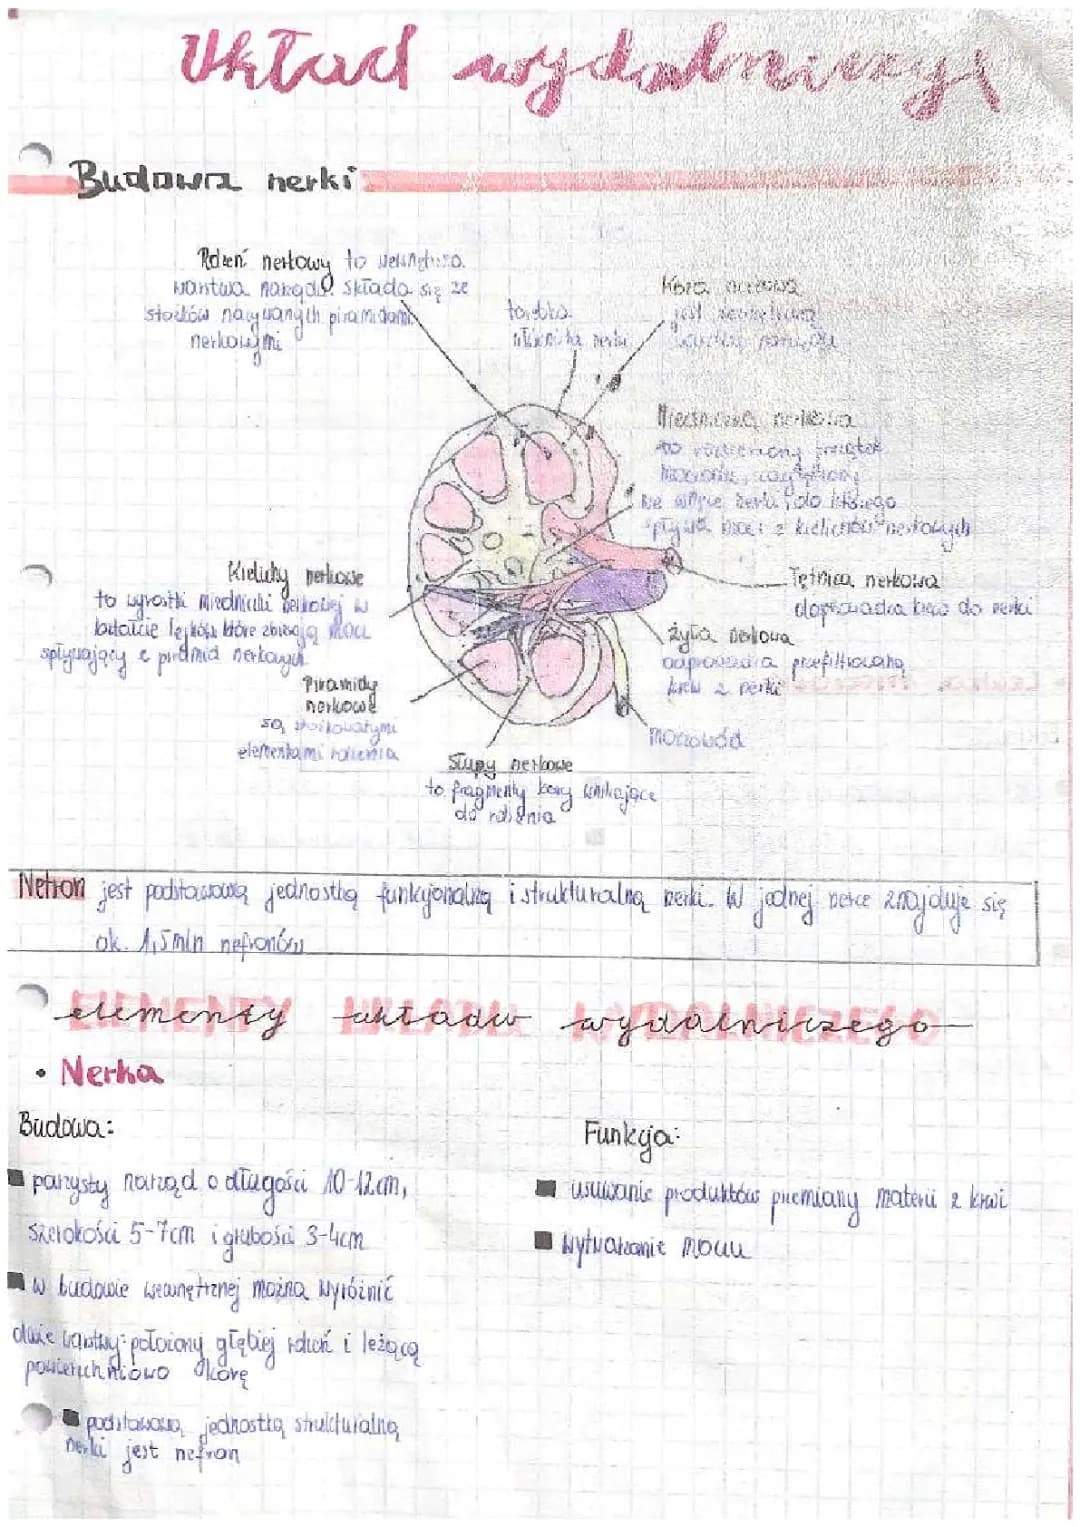 Układ wydalniczy
Budowa nerki
Rdzeń nerkowy to wewnętrzna
warstwa narządu. składa się ze
stożków nazywanych piramidami
nerkowymi
torebka
włóknista nerki
Kora nerkowa
jest zewnętrzną
warstwą narządu
Miedniczka nerkowa
to rozszerzony początek
moczowodu,
we wnęce nerki, do którego
spływa mocz z kielichów nerkowych
Tętnica nerkowa
doprowadza krew do nerki
żyła nerkowa
odprowadza przefiltrowaną
krew z nerki
moczowód
Kielichy nerkowe
to wyrostki miedniczki nerkowej w
kształcie lejków które zbierają mocz
spływający z piramid nerkowych
Piramidy
nerkowe
są stożkowatymi
elementami rdzenia
Słupy nerkowe
to fragmenty kory wnikające
do rdzenia
Nefron jest podstawową jednostką funkcjonalną i strukturalną nerki. W jednej nerce znajduje się
ok. 1,5mln nefronów
elementy układu wydalniczego
• Nerka
Budowa:
parzysty narząd o długości 10-12cm,
szerokości 5-7cm i grubości 3-4cm
w budowie wewnętrznej można wyróżnić
dwie warstwy: położony głębiej rdzeń i leżącą
powierzchniowo korę
podstawową jednostką strukturalną
nerki jest nefron
Funkcja:
usuwanie produktów przemiany materii z krwi
wytwarzanie moczu